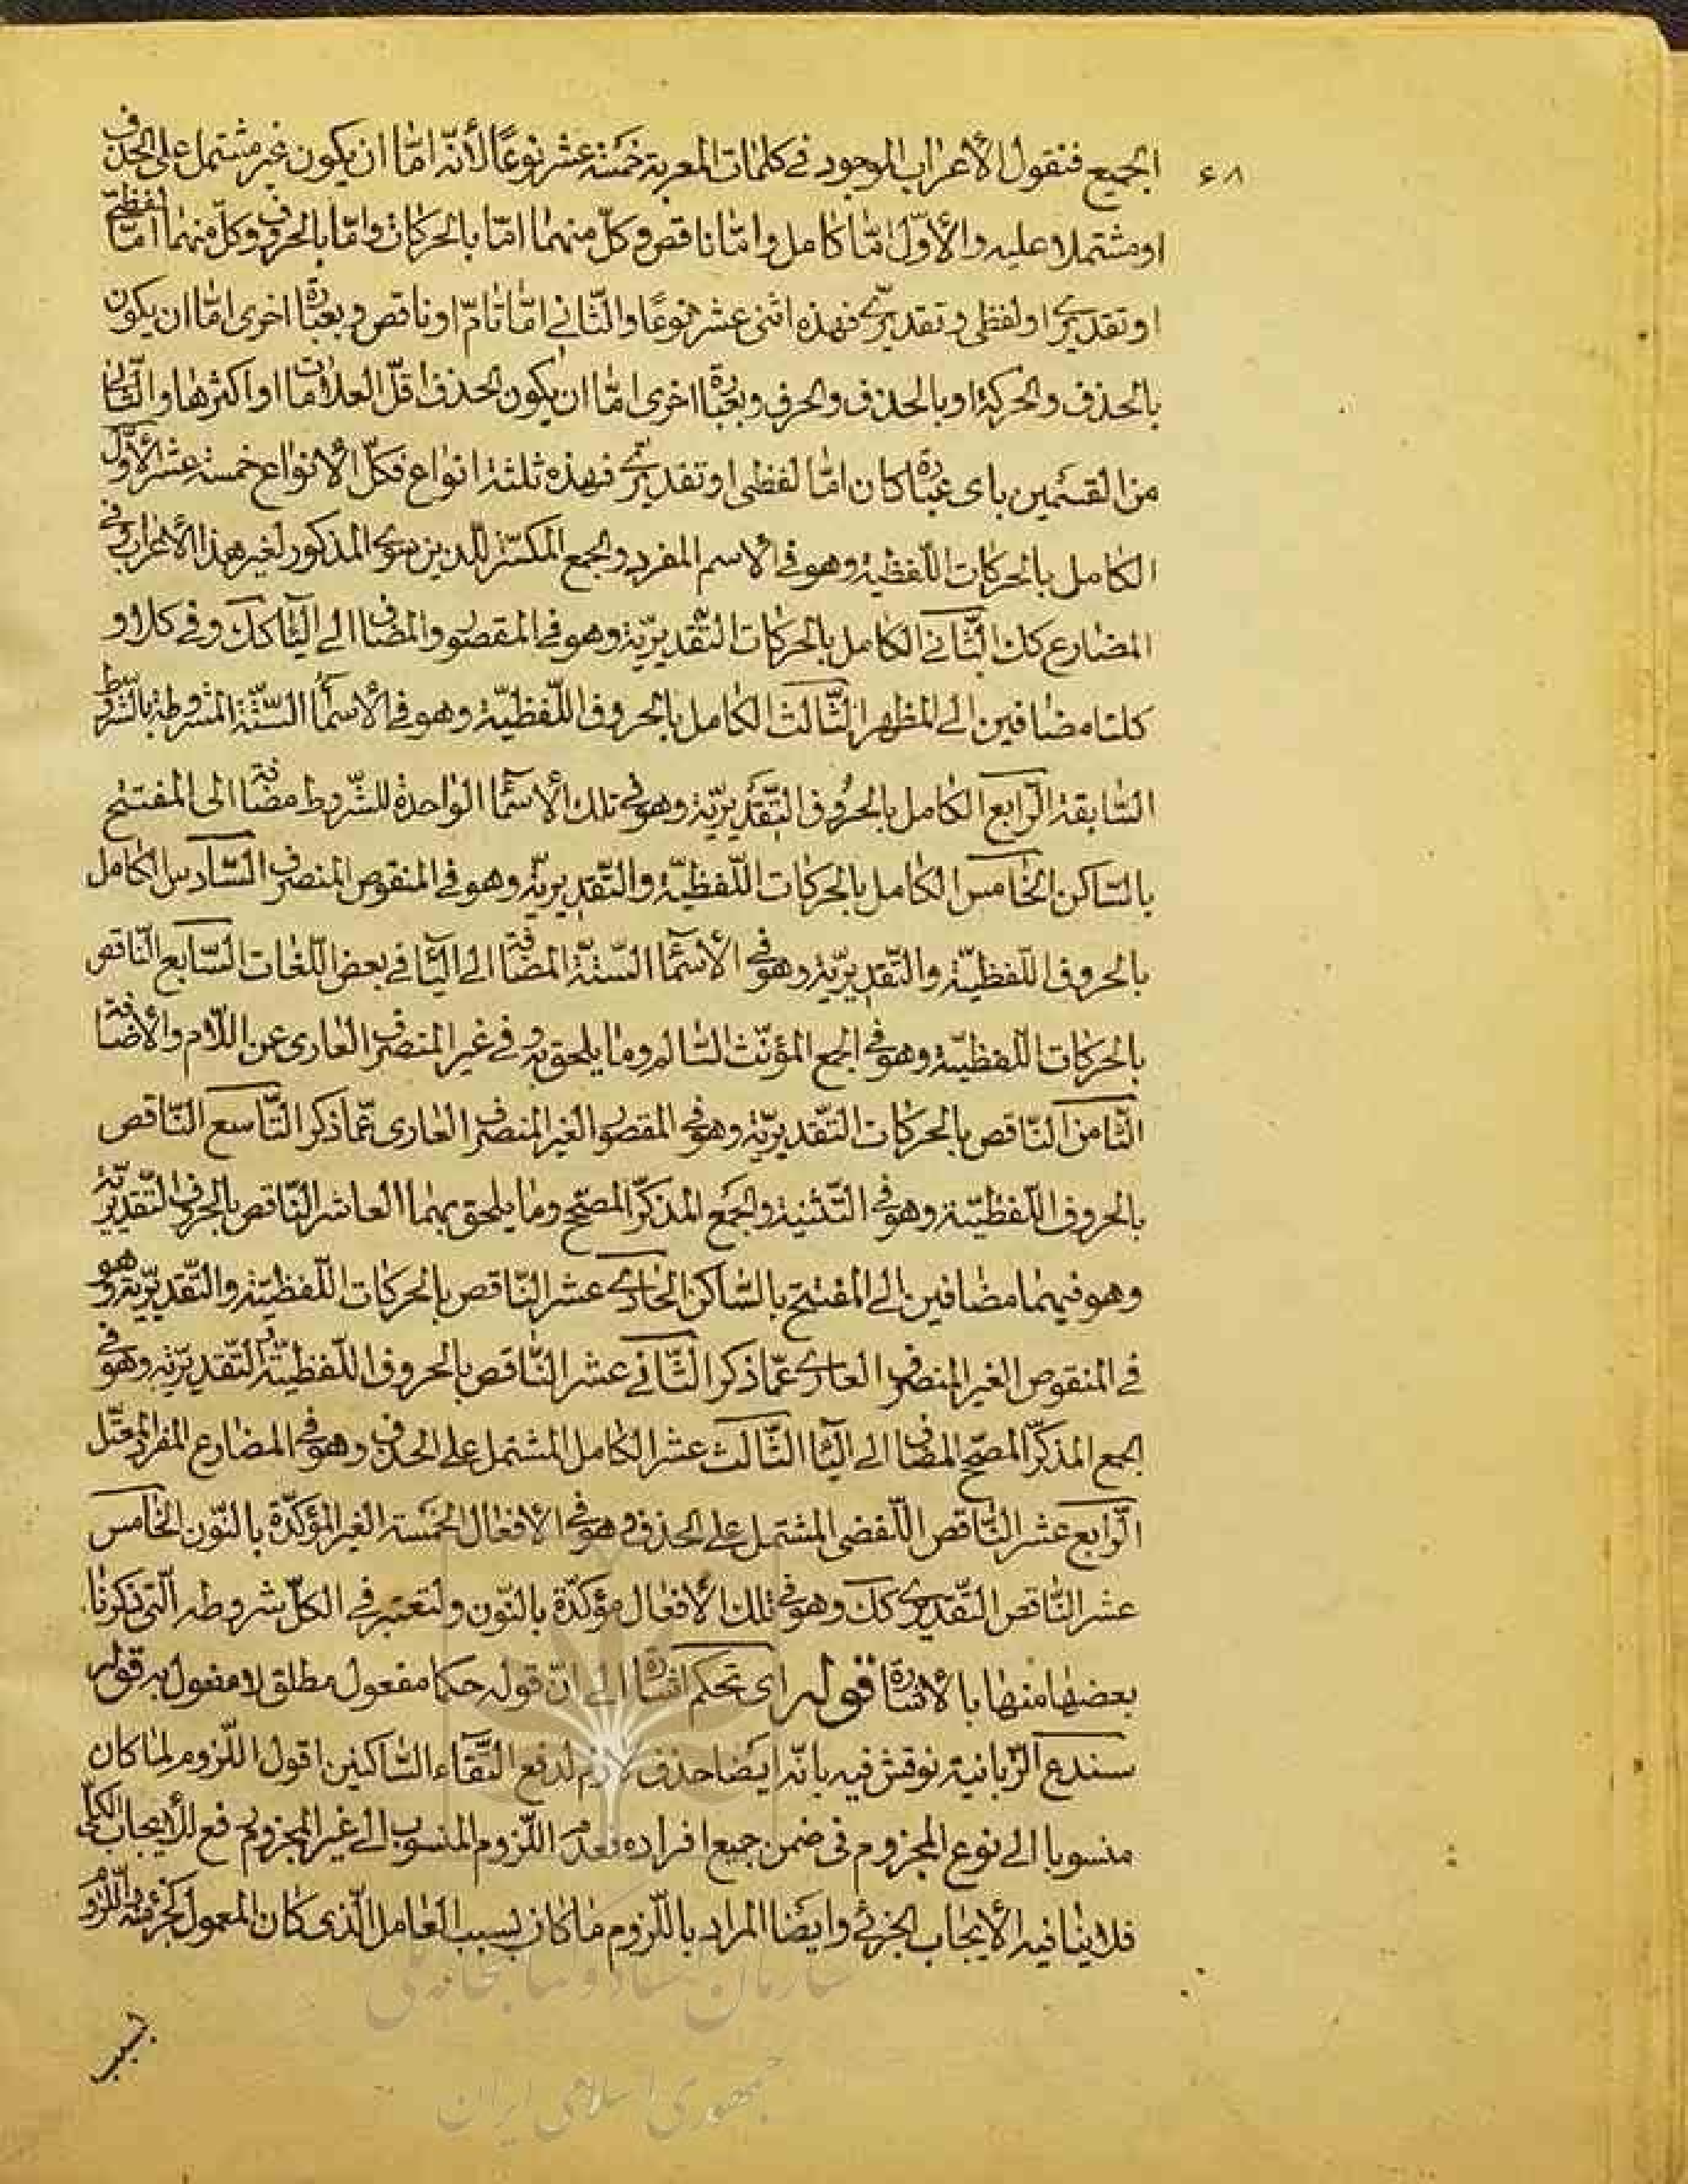 ۶۸
الجميع فنقول الأعراب الموجود فى كلمات المعربة خمسة عشر نوعًا لأنّه امّا ان يكون غير مشتمل على الحذف
او مشتملا عليه والأوّل امّا كامل وامّا ناقص وكلّ منهما امّا بالحركات وامّا بالحروف وكلّ منهما امّا لفظىّ
او تقديرىّ او لفظى وتقديرىّ فهذه اثنى عشر نوعًا والثّانى امّا تامّ او ناقص وبعبارة اخرى امّا ان يكون
بالحذف والحركة او بالحذف والحرف وبعبارة اخرى امّا ان يكون الحذف اقلّ العلامات او اكثرها والثّانى
من القسمين باى عبارة كان امّا لفظى او تقديرىّ فهذه ثلثة انواع فكلّ الأنواع خمسة عشر الأوّل
الكامل بالحركات اللّفظيّة وهو فى الاسم المفرد والجمع المكسّر اللّذين سوى المذكور لغير هذا الأعراب وفى
المضارع كك الثّانى الكامل بالحركات التّقديريّة وهو فى المقصور والمضاف الى الياء كك وفى كلا و
كلتا مضافين الى المظهر الثّالث الكامل بالحروف اللّفظيّة وهو فى الأسماء السّتّة المشروطة بالشّروط
السّابقة الرّابع الكامل بالحروف التّقديريّة وهو فى تلك الأسماء الواحدة للشّروط مضافة الى المفتتح
بالسّاكن الخامس الكامل بالحركات اللّفظيّة والتّقديريّة وهو فى المنقوص المنصرف السّادس الكامل
بالحروف اللّفظيّة والتّقديريّة وهو فى الأسماء السّتّة المضافة الى الياء فى بعض اللّغات السّابع النّاقص
بالحركات اللّفظيّة وهو فى الجمع المؤنّث السّالم وما يلحق به وفى غير المنصرف العارى عن اللّام والأضافة
الثّامن النّاقص بالحركات التّقديريّة وهو فى المقصور الغير المنصرف العارى عمّا ذكر التّاسع النّاقص
بالحروف اللّفظيّة وهو فى التّثنية والجمع المذكّر المصحّح وما يلحق بهما العاشر النّاقص بالحروف التّقديريّة
وهو فيهما مضافين الى المفتتح بالسّاكن الحادى عشر النّاقص بالحركات اللّفظيّة والتّقديريّة وهو
فى المنقوص الغير المنصرف العارى عمّا ذكر الثّانى عشر النّاقص بالحروف اللّفظيّة والتّقديريّة وهو فى
الجمع المذكّر المصحّح المضاف الى الياء الثّالث عشر الكامل المشتمل على الحذف وهو فى المضارع المفرد المعتلّ
الرّابع عشر النّاقص اللّفضى المشتمل على الحذف وهو فى الافعال الخمسة الغير المؤكّدة بالنّون الخامس
عشر النّاقص التّقديرى كك وهو فى تلك الافعال مؤكّدة بالنّون ولتعتبر فى الكلّ شروطه الّتى ذكرنا
بعضها منها بالأشارة قوله اى تحكم اشارة الى انّ قوله حكما مفعول مطلق لا مفعول به قوله
سندع الزّبانية نوقش فيه بانّه ايضا حذف لازم لدفع التقاء السّاكنين اقول اللّزوم لمّا كان
منسوبا الى نوع المجزوم فى ضمن جميع افراده فعدم اللّزوم المنسوب الى غير المجزوم رفع للأيجاب الكلّى
فلا ينافيه الأيجاب الجزئى وايضا المراد باللّزوم ما كان بسبب العامل الّذى كان المعمول
بسبب
سازمان اسناد و کتابخانه ملی
جمهوری اسلامی ایران